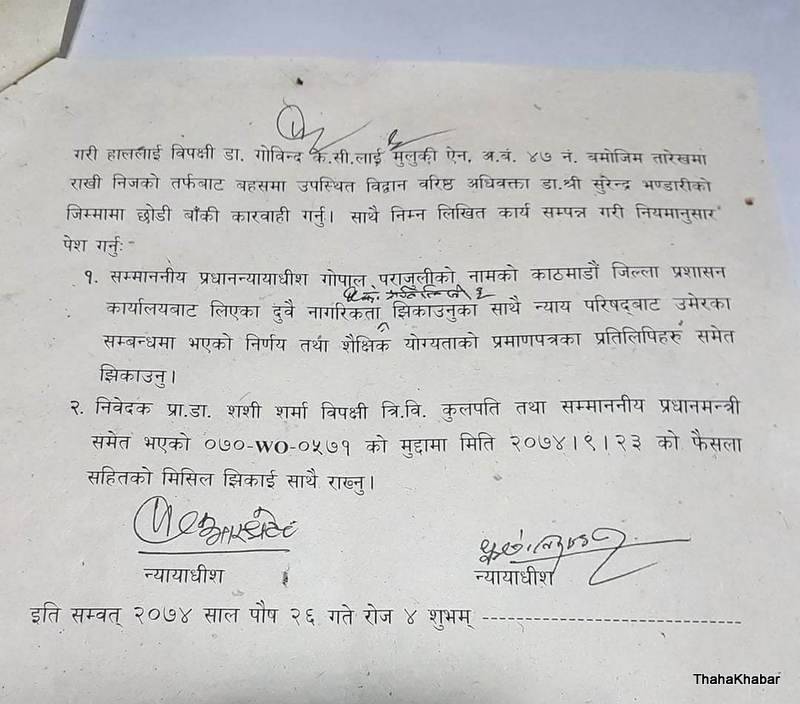 गरी हाललाई विपक्षी डा. गोविन्द के.सी.लाई मुलुकी ऐन, अ.बं. ४७ नं. बमोजिम तारेखमा
राखी निजको तर्फबाट बहसमा उपस्थित विद्वान वरिष्ठ अधिवक्ता डा.श्री सुरेन्द्र भण्डारीको
जिम्मामा छोडी बाँकी कारवाही गर्नु। साथै निम्न लिखित कार्य सम्पन्न गरी नियमानुसार
पेश गर्नुः-
१. सम्माननीय प्रधानन्यायाधीश गोपाल पराजुलीको नामको काठमाडौं जिल्ला प्रशासन
कार्यालयबाट लिएका दुवै नागरिकता झिकाउनुका साथै न्याय परिषद्बाट उमेरका
सम्बन्धमा भएको निर्णय तथा शैक्षिक योग्यताको प्रमाणपत्रका प्रतिलिपिहरु समेत
झिकाउनु।
२. निवेदक प्रा.डा. शशी शर्मा विपक्षी त्रि.वि. कुलपति तथा सम्माननीय प्रधानमन्त्री
समेत भएको ०७०-WO-०५७१ को मुद्दामा मिति २०७४।९।२३ को फैसला
सहितको मिसिल झिकाई साथै राख्नु।
न्यायाधीश न्यायाधीश
इति सम्वत् २०७४ साल पौष २६ गते रोज ४ शुभम् ------------------------------
ThahaKhabar